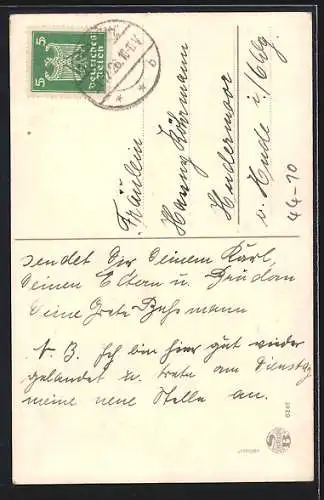 5 Deutsches Reich 5
26.10-11V
* b *
Fräulein
Hanny Köhrmann
Hudermoor
b. Hude i/Oldbg.
44-10
sendet Dir Deinem Karl,
Deinen Eltern u. Brüdern
Deine Grete Bußmann
N. B. Ich bin hier gut wieder
gelandet u. trete am Dienstag
meine neue Stelle an.